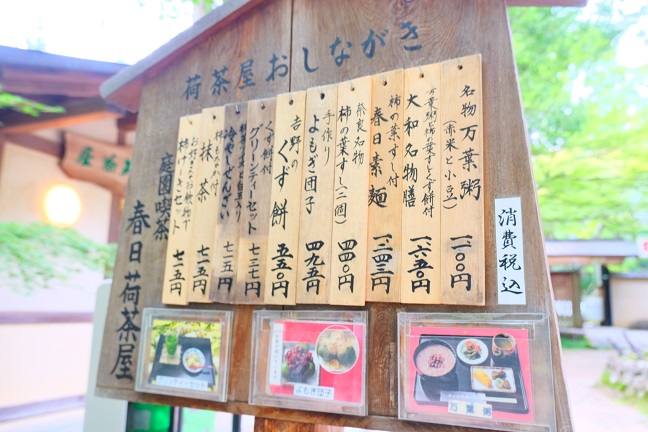 荷茶屋おしながき
名物 万葉粥
(赤米と小豆)
一一〇〇円
万葉粥と柿の葉ずしとくず餅付
大和名物膳
一六五〇円
柿の葉ずし付
春日素麺
一二四三円
奈良名物
柿の葉ずし(二個)
四四〇円
手作り
よもぎ団子
四九五円
吉野の
くず餅
五五〇円
くず餅付
グリーンティーセット
七三七円
冷やしぜんざい
七一五円
抹茶
七一五円
七一五円
消費税込
庭園喫茶
春日荷茶屋
よもぎ団子
万葉粥